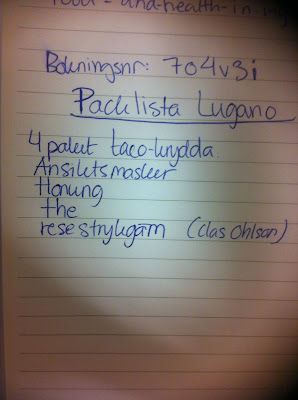 food-and-health-in my
Bokningsnr: 704v3i
Packlista Lugano
4 paket taco-krydda
Ansiktsmasker
Honung
the
resestrykjärn (Clas Ohlson)